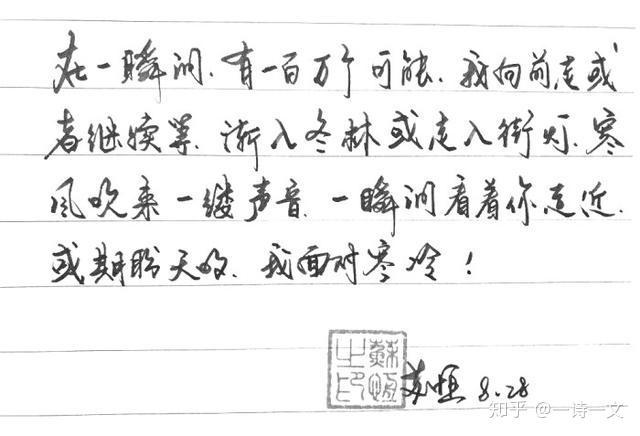 在一瞬间.有一百万个可能.我向前走或
者继续等.渐入冬林或走入街灯.寒
风吹来一缕声音.一瞬间看着你走近.
或期盼天明.我面对寒冷!
蘇恒之印
苏恒 8.28
知乎 @一诗一文